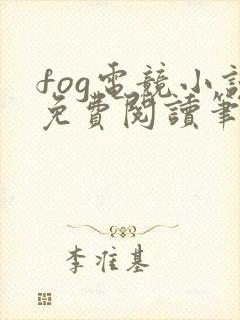 fog電競小說
免費閱讀筆
李准基